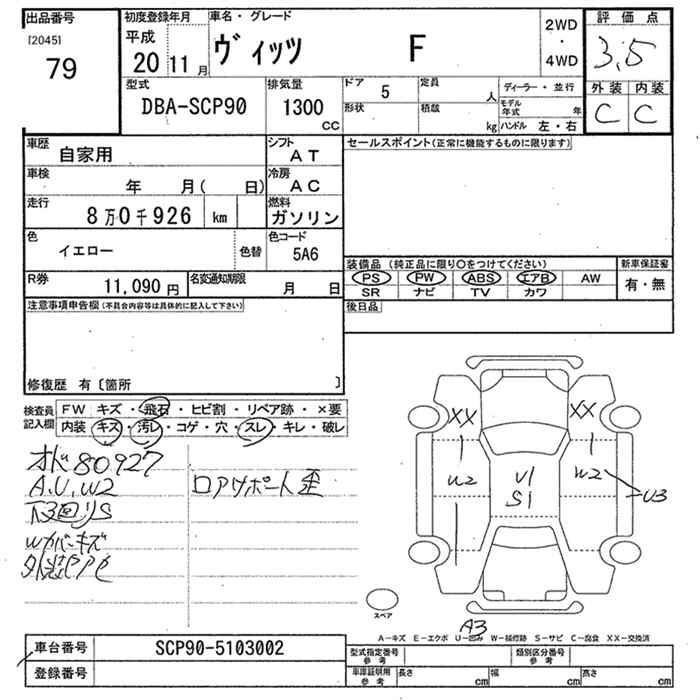 出品番号
[2045]
79
初度登録年月
平成
20 11月
車名・グレード
ヴィッツ F
2WD
・
4WD
評価点
3.5
外装 内装
C C
型式
DBA-SCP90
排気量
1300
CC
ドア
5
定員
人
形状
積載
kg
ディーラー・並行
モデル年式 年
ハンドル 左・右
車歴
自家用
シフト
AT
車検
年 月( 日)
冷房
AC
走行
8万0千926 km
燃料
ガソリン
色
イエロー
色替
色コード
5A6
R券
11,090円
名変通知期限
月 日
セールスポイント(正常に機能するものに限ります)
装備品(純正品に限り○をつけてください)
PS PW ABS エアB AW
SR ナビ TV カワ
新車保証書
有・無
後日品
注意事項申告欄(不具合内容等は具体的に記入して下さい)
修復歴 有〔箇所 〕
検査員記入欄
FW キズ・飛石・ヒビ割・リペア跡・×要
内装 キズ・汚レ・コゲ・穴・スレ・キレ・破レ
80927
A.U.W2
下回りS
Wカバーキズ
ロアサポート歪
XX XX
U2
U1
S1
W2
U3
A3
スペア
A−キズ E−エクボ U−凹み W−補修跡 S−サビ C−腐食 XX−交換済
車台番号
SCP90-5103002
登録番号
型式指定番号
参考
類別区分番号
参考
車庫証明用
参考
長さ
cm
幅
cm
高さ
cm